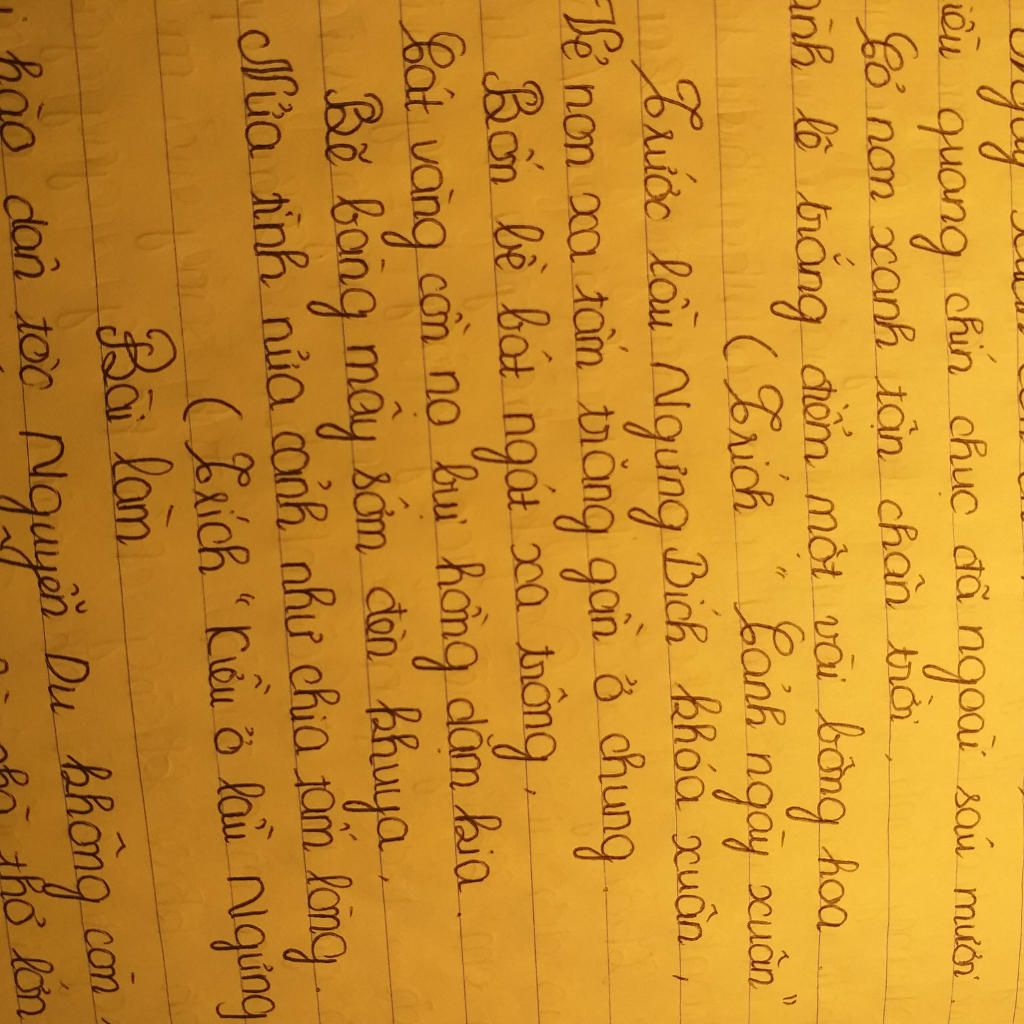 iều quang chín chục đã ngoài sáu mươi.
Cỏ non xanh tận chân trời,
ành lê trắng điểm một vài bông hoa.
( Trích " Cảnh ngày xuân "
Trước lầu Ngưng Bích khóa xuân,
Vẻ non xa tấm trăng gần ở chung.
Bốn bề bát ngát xa trông,
Cát vàng cồn nọ bụi hồng dặm kia.
Bẽ bàng mây sớm đèn khuya,
Nửa tình nửa cảnh như chia tấm lòng.
( Trích " Kiều ở lầu Ngưng
Bài làm
hào dân tộc Nguyễn Du không còn,
thơ lớn